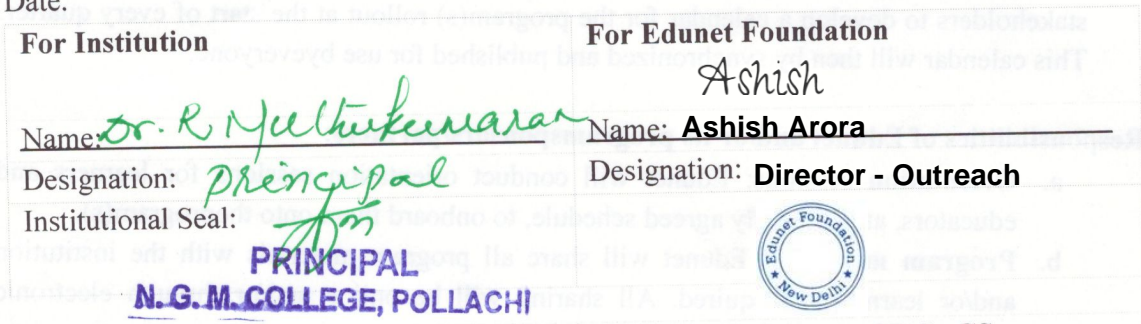 Date:
For Institution
Name: Dr. R. Muthukumaran
Designation: Principal
Institutional Seal:
PRINCIPAL
N.G.M.COLLEGE, POLLACHI
For Edunet Foundation
Ashish
Name: Ashish Arora
Designation: Director - Outreach
Edunet Foundation
New Delhi